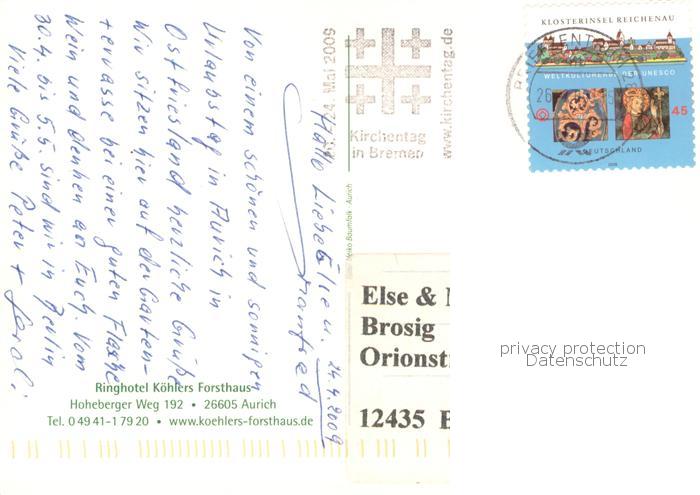 Hallo Liebe Else u. 24.4.2009
Manfred
Von einem schönen und sonnigen
Urlaubstag in Aurich in
Ostfriesland herzliche Grüße
Wir sitzen hier auf der Garten-
terrasse bei einer guten Flasche
Wein und denken an Euch. Vom
30.4. bis 5.5. sind wir in Berlin
Viele Grüße Peter +
Ringhotel Köhlers Forsthaus
Hoheberger Weg 192 • 26605 Aurich
Tel. 0 49 41-1 79 20 • www.koehlers-forsthaus.de
24. Mai 2009
Kirchentag
in Bremen
www.kirchentag.de
KLOSTERINSEL REICHENAU
WELTKULTURERBE DER UNESCO
45
DEUTSCHLAND
Else &
Brosig
Orionst
12435 B
privacy protection
Datenschutz